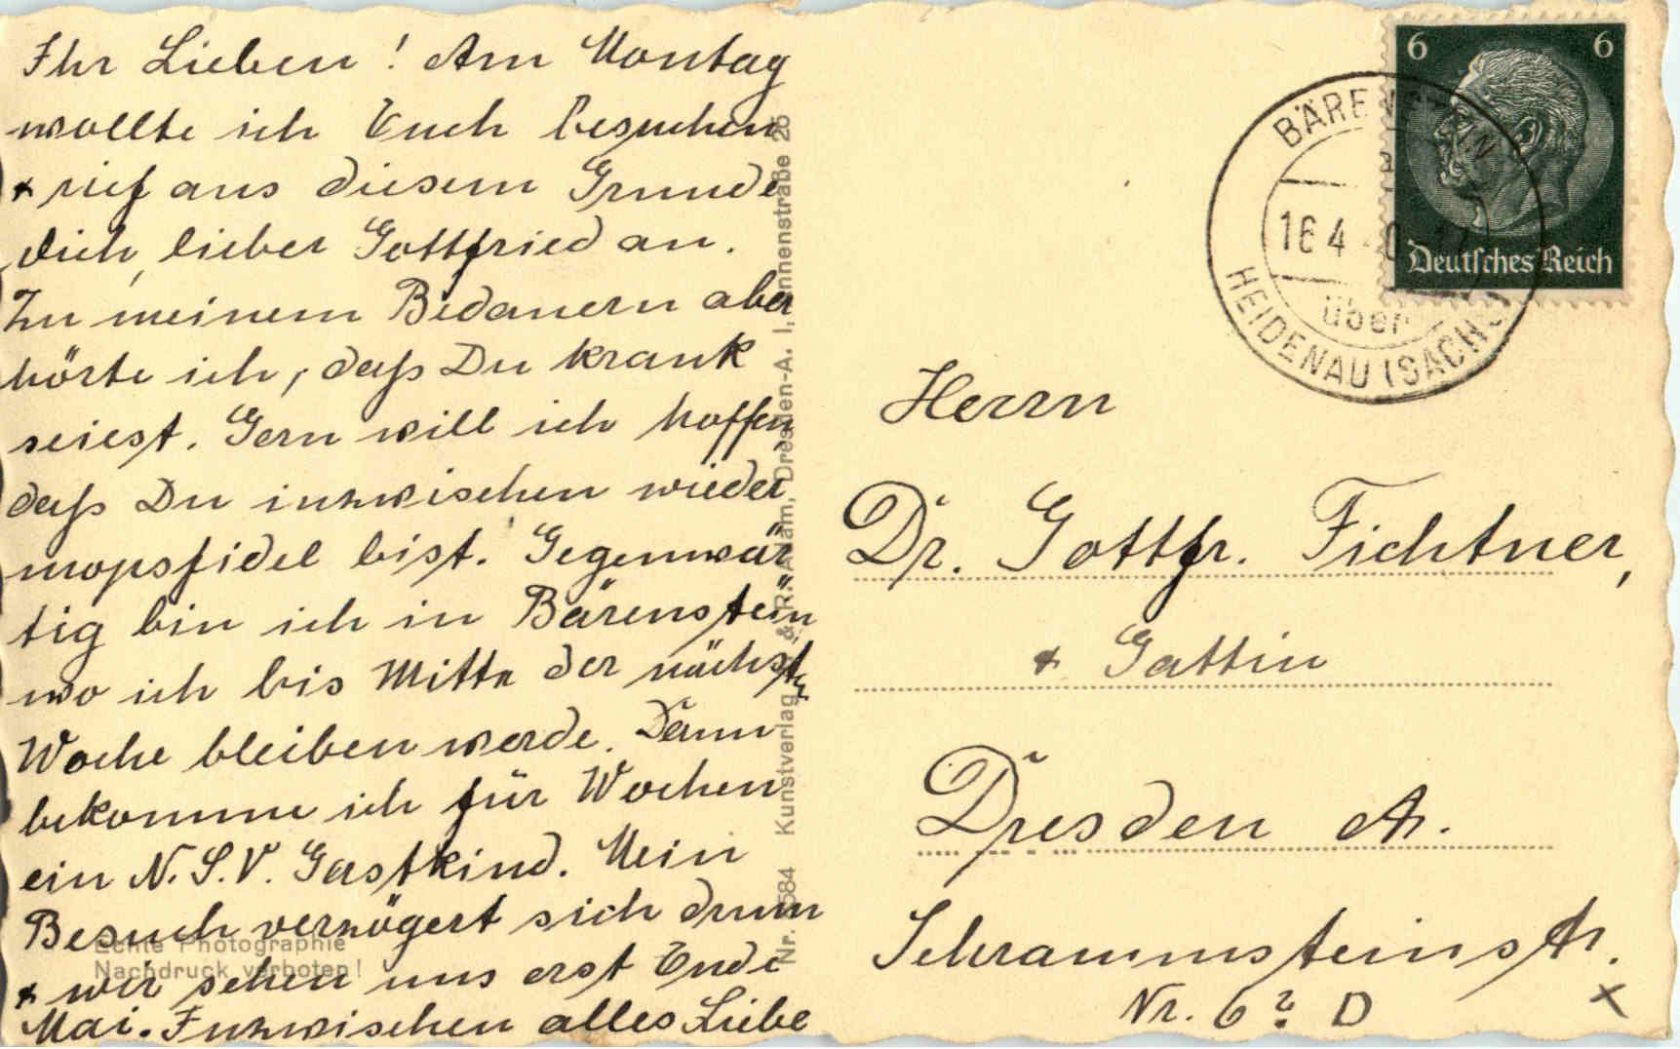 Ihr Lieben! Am Montag
wollte ich Euch besuchen
+ rief aus diesem Grunde
dich, lieber Gottfried an.
Zu meinem Bedauern aber
hörte ich, daß Du krank
seiest. Gern will ich hoffen
daß Du inzwischen wieder
mopsfidel bist. Gegenwär
tig bin ich in Bärenstein
wo ich bis Mitte der nächsten
Woche bleiben werde. Dann
bekomme ich für Wochen
ein N.S.V. Gastkind. Mein
Besuch verzögert sich drum
+ wir sehen uns erst Ende
Mai. Inzwischen alles Liebe
Echte Photographie
Nachdruck verboten!
Kunstverlag R. Adam, Dresden-A. 1, nnenstraße 26
6 6
Deutsches Reich
BÄRENSTEIN
16 4
über
HEIDENAU (SACHS)
Herrn
Dr. Gottfr. Fichtner,
+ Gattin
Dresden A.
Schrammsteinstr.
Nr. 6? D
x